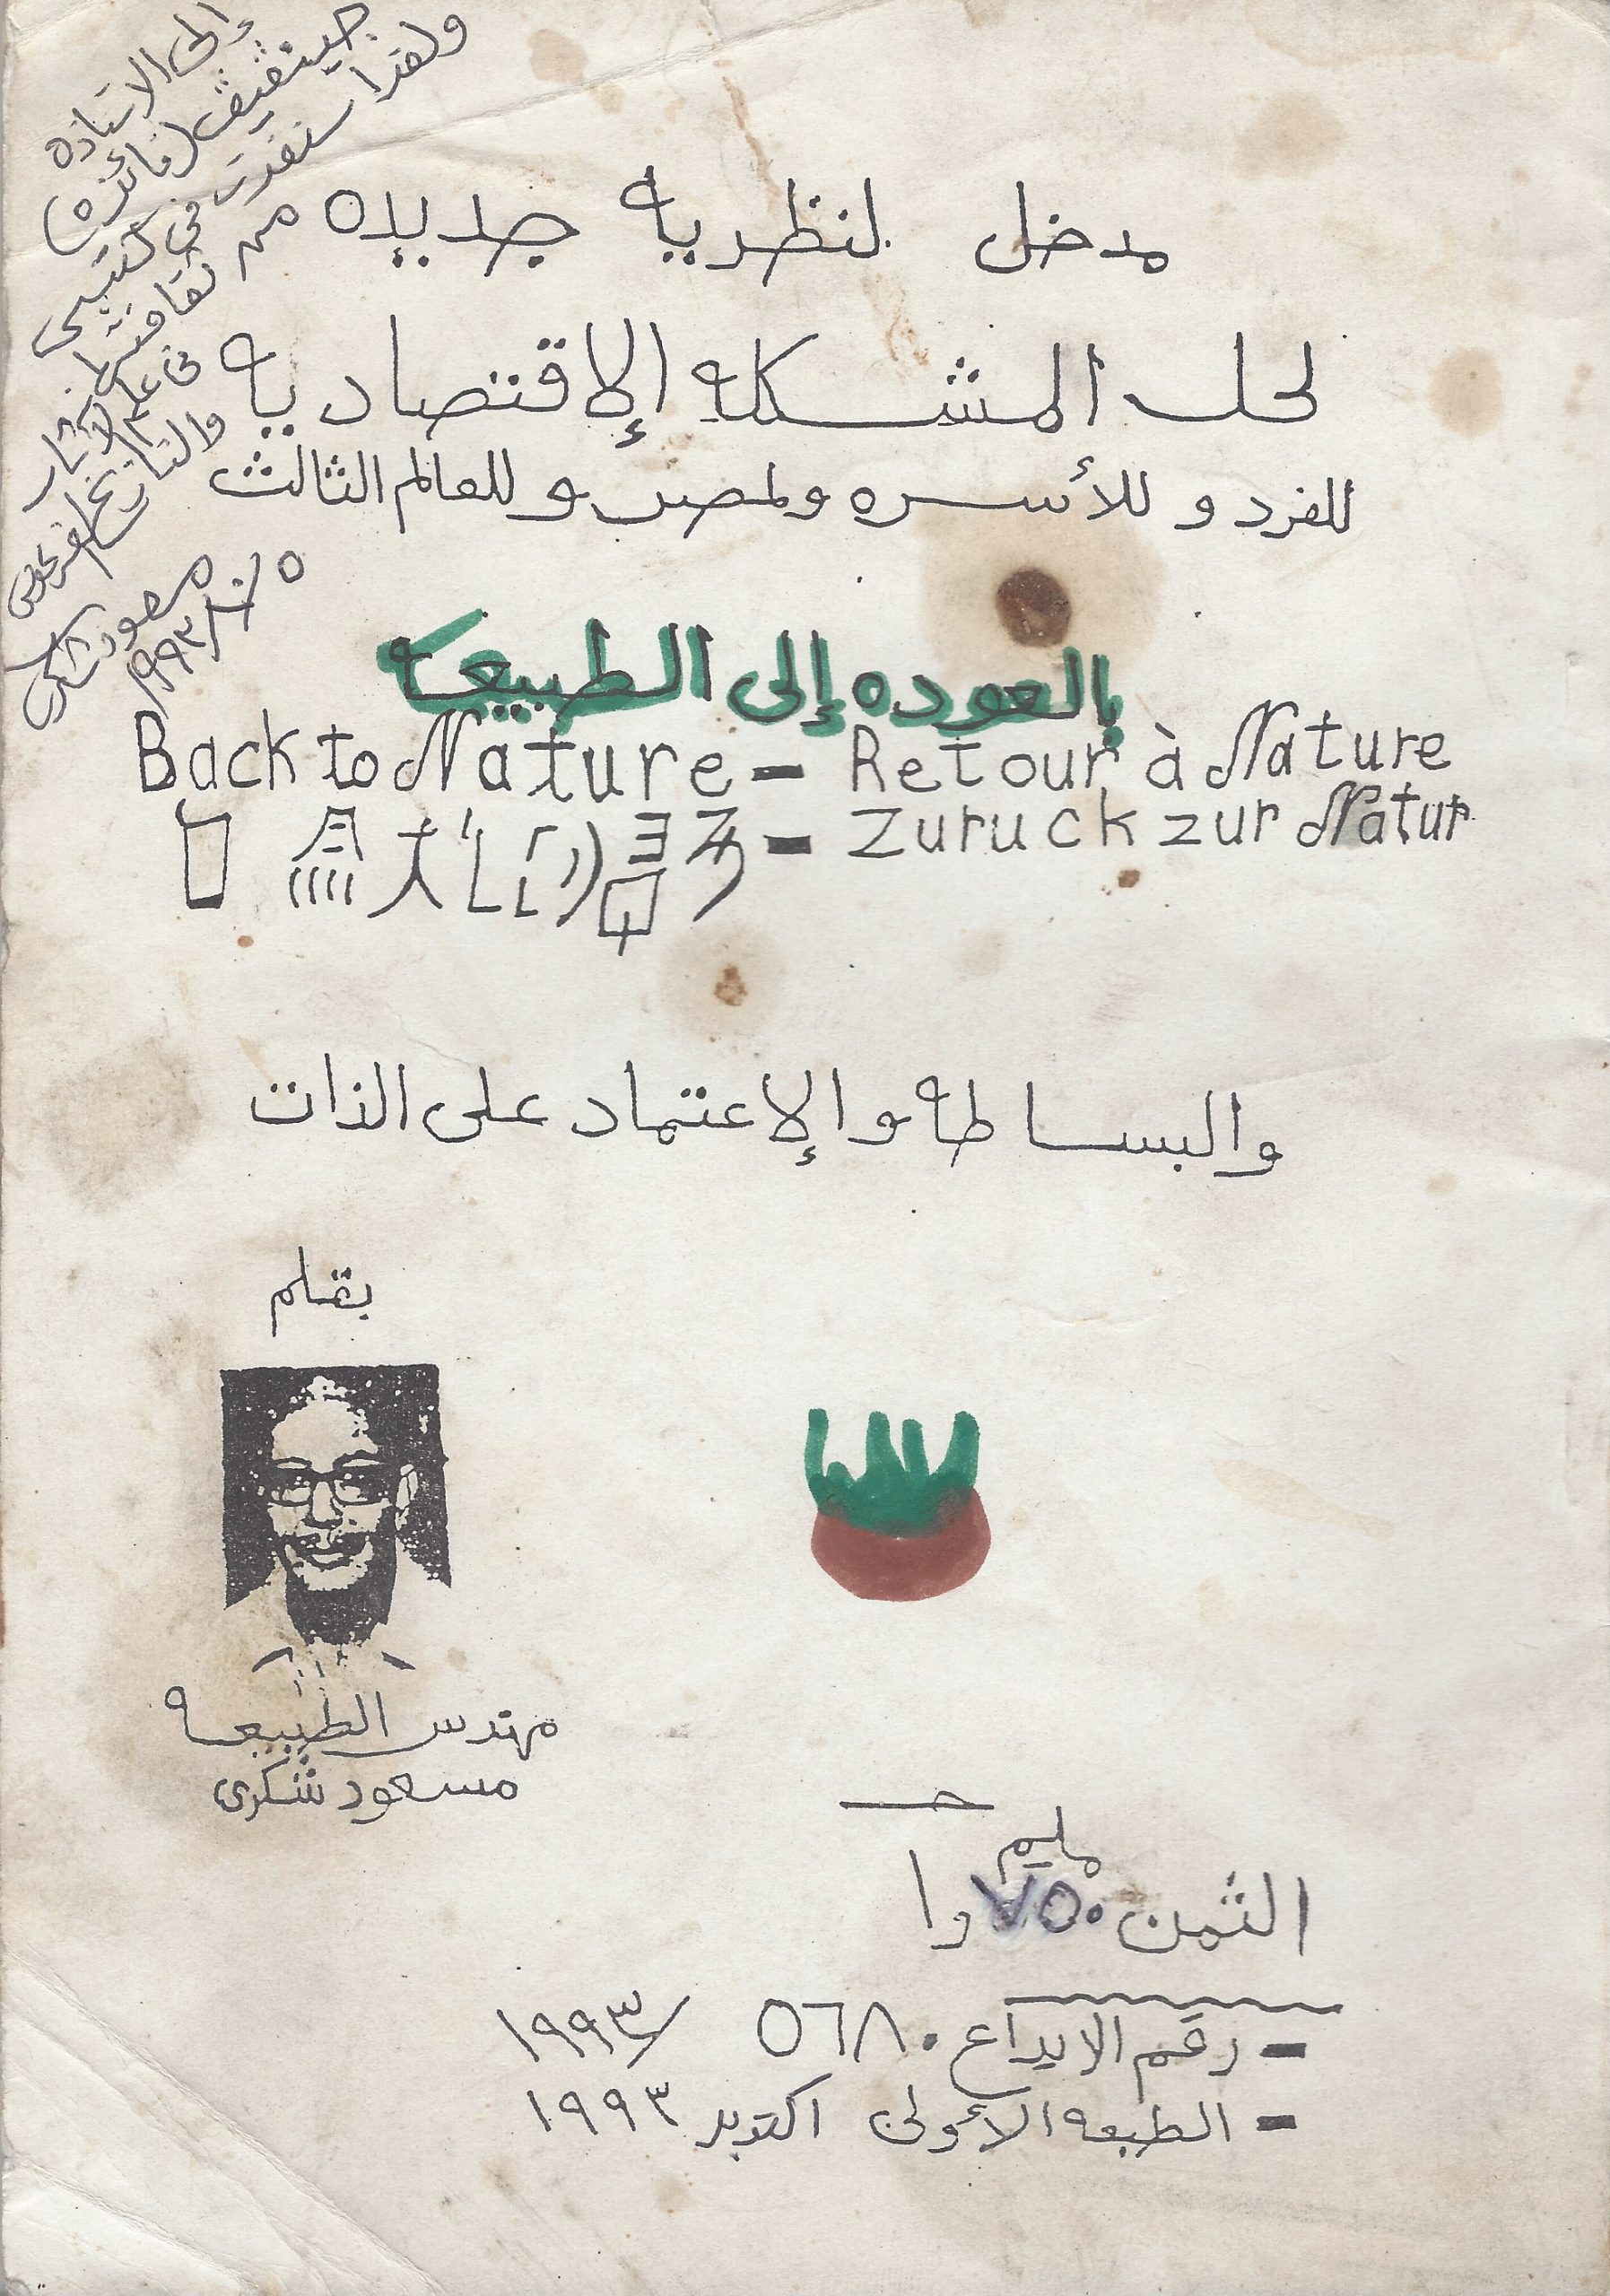 والى الاستاذه
جينفييف (فائزه)
ولقد استفدت
فى كتبى من
ثقافتها
فى علم الآثار
والتاريخ الفرعونى
مسعود شكرى
١٩٩٣/١٠/٥
مدخل لنظريه جديده
لحل المشكله الإقتصاديه
للفرد و للأسره ولمصر و للعالم الثالث
بالعوده إلى الطبيعه
Back to Nature – Retour à Nature
– Zuruck zur Natur
والبساطه والإعتماد على الذات
بقلم
مهندس الطبيعه
مسعود شكرى
مليم
الثمن ٧٥٠ را
– رقم الايداع ٥٦٨٠ /١٩٩٣
– الطبعه الأولى اكتوبر ١٩٩٣